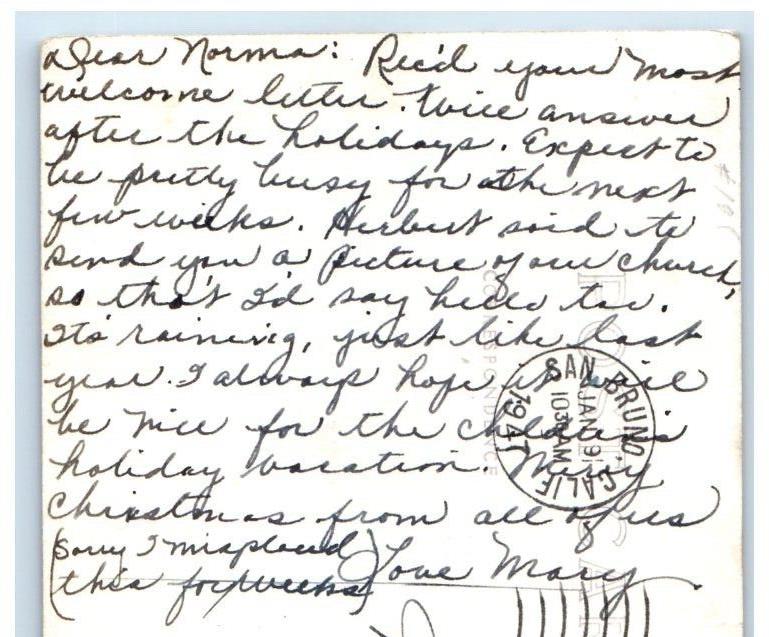 Dear Norma: Rec'd your most
welcome letter. Twice answer
after the holidays. Expect to
be pretty busy for the next
few weeks. Herbert said to
send you a picture of our church,
so that I'd say hello too.
Its raining, just like last
year. I always hope it will
be nice for the children's
holiday vacation. Merry
Christmas from all of us
(Sorry I misplaced
this for weeks)
Love Mary
SAN BRUNO, CALIF.
JAN 9
10 30 AM
1947
POST CARD
CORRESPONDENCE